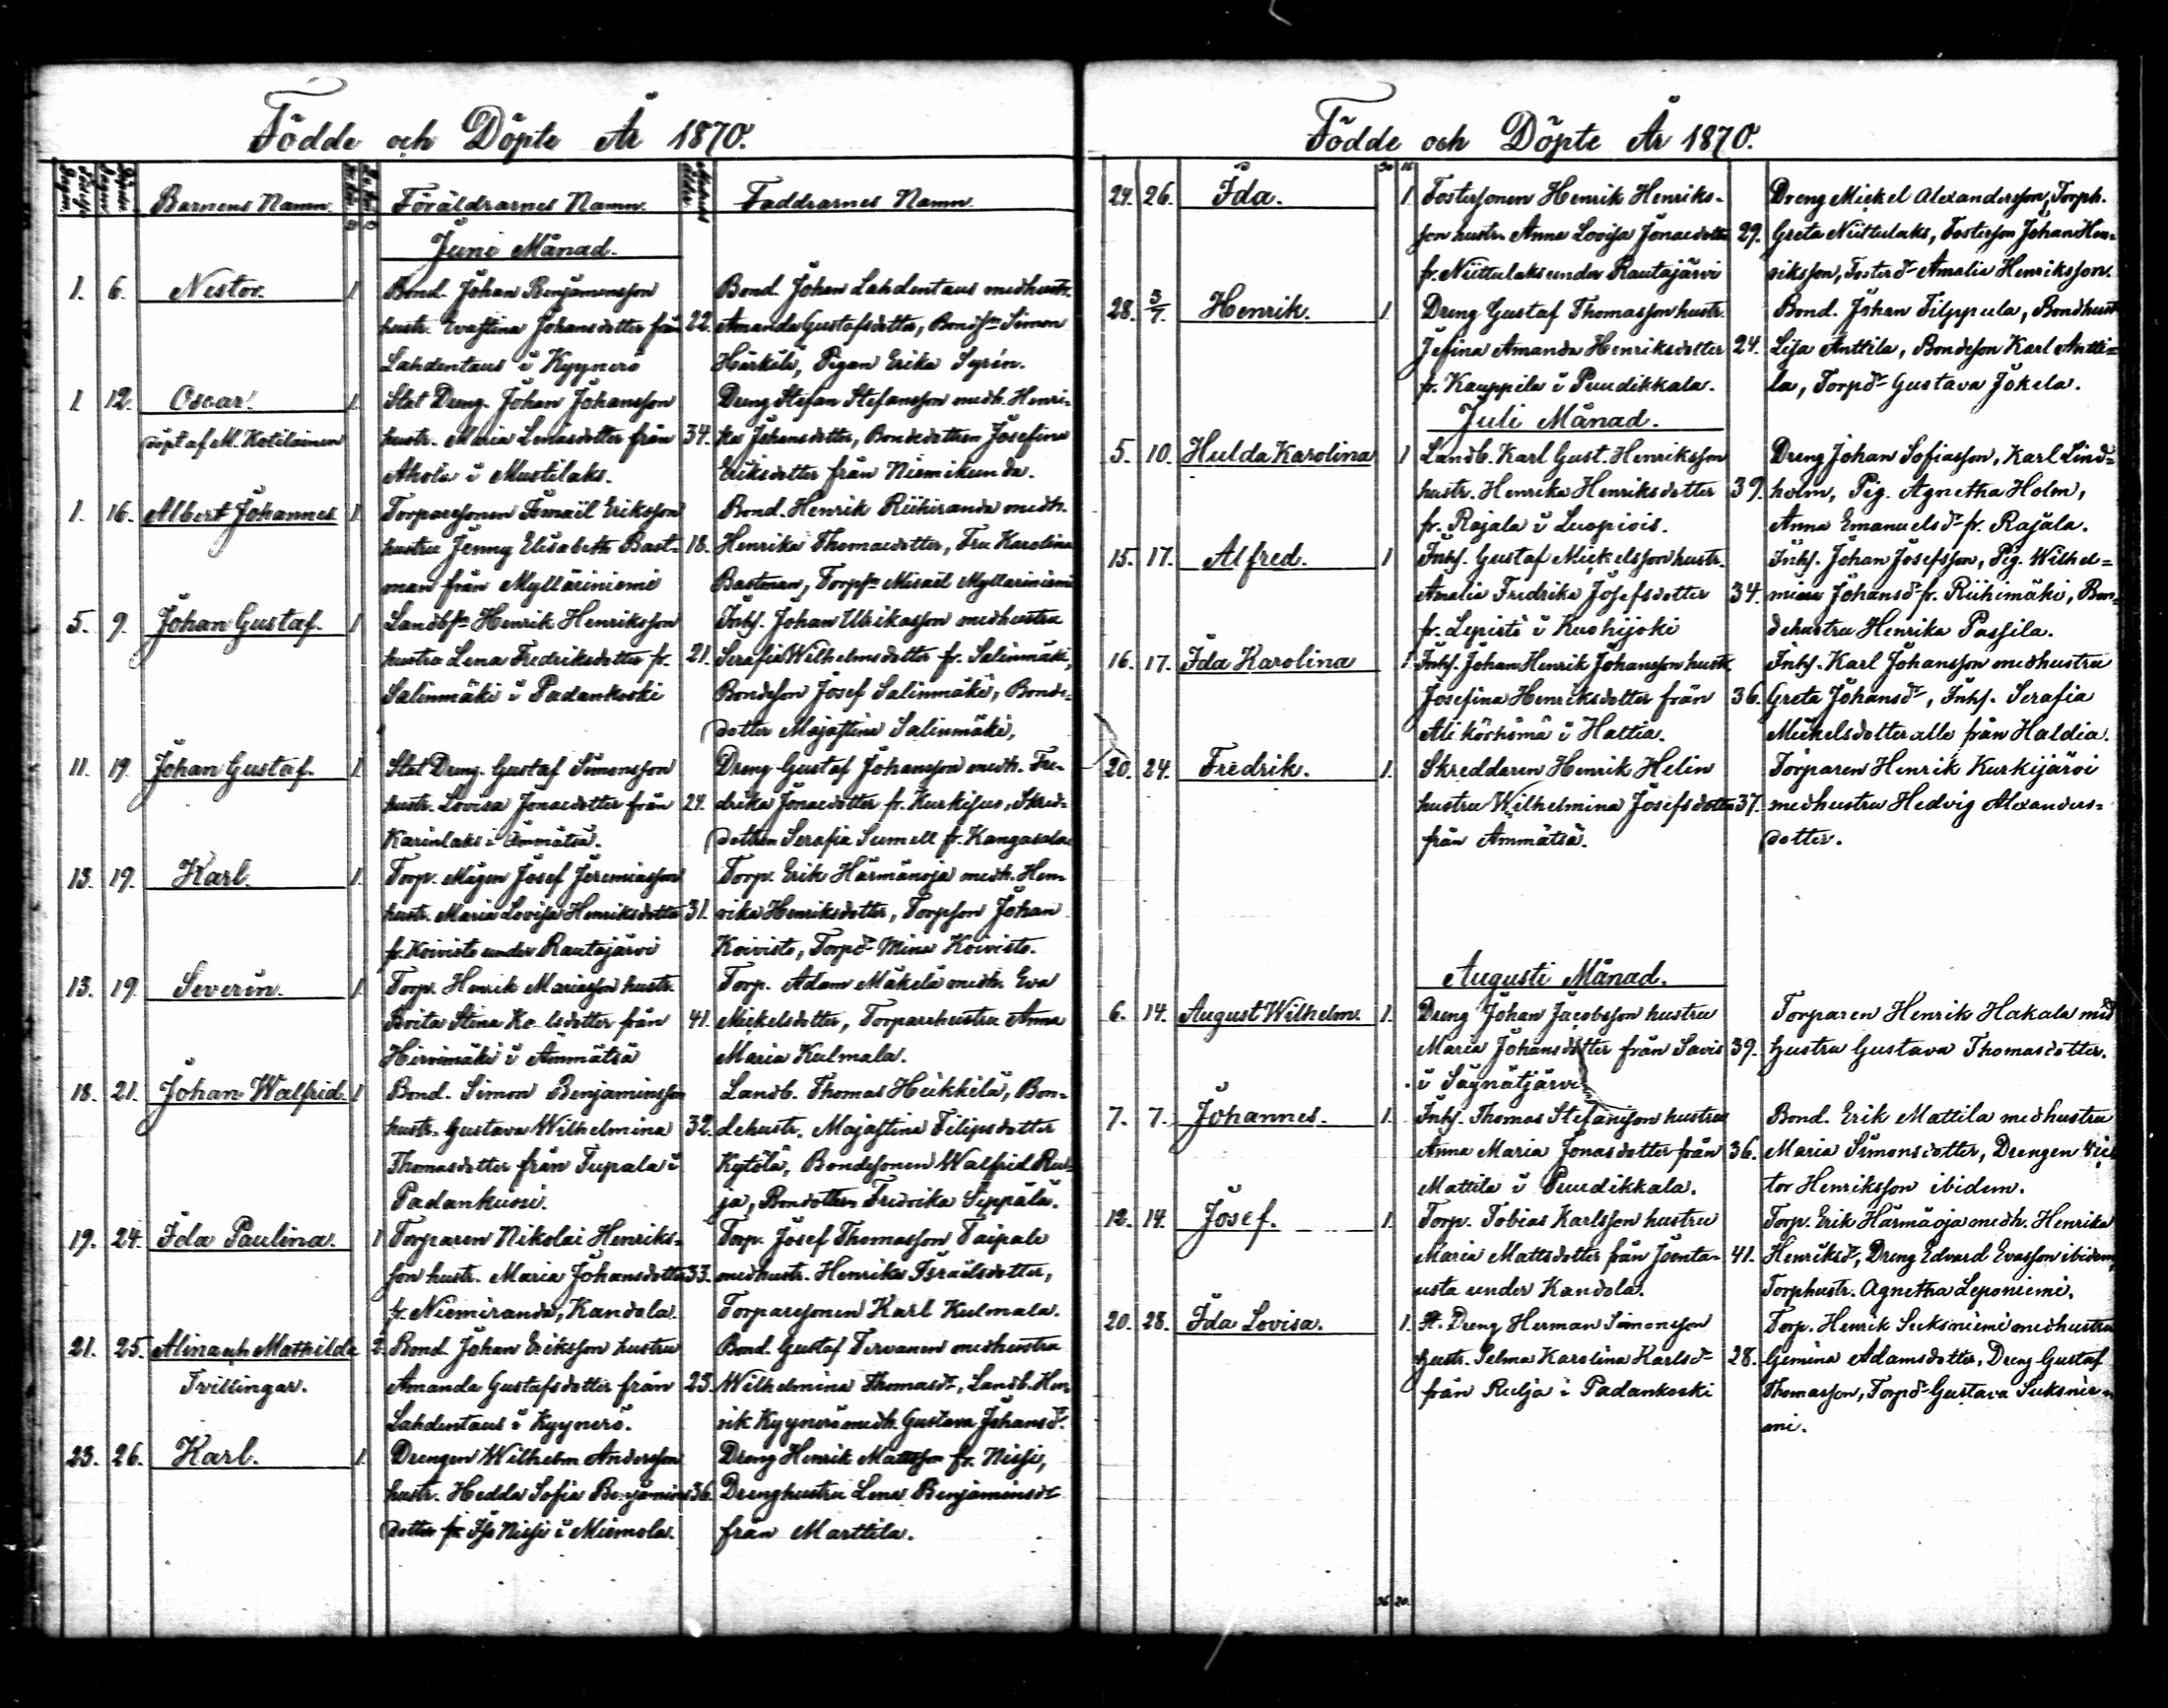 Födde och Döpte År 1870.
Barnens Namn. Föräldrarnes Namn. Faddrarnes Namn.
Juni Månad.
1. 6. Nestor. 1 Bond. Johan Benjamensson Bond. Johan Lahdentaus medhustr.
hustr. Evastina Johansdotter från 22. Amanda Gustafsdotter, Bonds Simon
Lahdentaus i Kyynerö Härkäli, Pigan Erika Syrén.
1 12. Oscar. 1. Stat Dreng. Johan Johansson Dreng Stefan Stefansson medh. Henri-
döpt af M. Kotilainen hustr. Maria Lenasdotter från 34. ka Johansdotter, Bondedottren Josefina
Ahola i Mustilaks. Eriksdotter från Niemikunda.
1. 16. Albert Johannes 1. Torparesonen Ismail Eriksson Bond. Henrik Riihiranda medh.
hustru Jenny Elisabeth Bast- 18. Henrika Thomasdotter, Fru Karolina
man från Mylläriniemi Bastman, Torps Misaël Myllariniemi
5. 9. Johan Gustaf. 1 Landbs Henrik Henriksson Inhs. Johan Ulrikasson medhustru
hustru Lena Fredriksdotter fr. 21. Serafia Wilhelmsdotter fr. Salinmäki,
Salinmäki i Padankoski Bondeson Josef Salinmäki, Bonde-
dotter Majastina Salinmäki,
11. 19. Johan Gustaf. 1. Stat Dreng. Gustaf Simonsson Dreng Gustaf Johansson medh. Fre-
hustr. Lovisa Jonaedotter från 24. drika Jonaedotter fr. Kurkisuo, Skred-
Karinlaks i Ämmätsä. dottren Serafia Sumell fr. Kangasala
13. 19. Karl. 1. Torp. Mågen Josef Jeremiasson Torp. Erik Härmänoja medh. Hen-
hustr. Maria Lovisa Henriksdotter 31. rika Henriksdotter, Torpson Johan
fr. Koivisto under Rautajärvi Koivisto, Torpd Mina Koivisto.
13. 19. Severin. 1. Torp. Henrik Mariasson hustr. Torp. Adam Mäkelä medh. Eva
Brita Stina Ka lsdotter från 41. Mickelsdotter, Torparehustru Anna
Hirvimäki i Ämmätsä Maria Kulmala.
18. 21. Johan Walfrid. 1 Bond. Simon Benjaminsson Landb. Thomas Heikkilä, Bon-
hustr. Gustava Wilhelmina 32. dehustr. Majastina Filipsdotter
Thomasdotter från Tupala i Kytölä, Bondesonen Walfrid Ru-
Padankuini. ja, Bondottren Fredrika Seppälä.
19. 24. Ida Paulina. 1 Torparen Nikolai Henriks- Torp. Josef Thomasson Taipale
son hustr. Maria Johansdotter 33. medhustr. Henrika Israelsdotter,
fr. Niemiranda, Kandola. Torparesonen Karl Kulmala.
21. 25. Alina och Mathilda 2. Bond. Johan Eriksson hustru Bond. Gustaf Tervanen medhustru
Tvillingar. Amanda Gustafsdotter från 23. Wilhelmina Thomasdr, Landb. Hen
Lahdentaus i Kyynerö. rik Kyynerö medh. Gustava Johansd.
23. 26. Karl. 1. Drengen Wilhelm Andersson Dreng Henrik Mattsson fr. Nissi,
hustr. Hedda Sofia Benjamins 36. Drenghustru Lena Benjaminsdr
dotter fr. Iso Nissi i Miemola. från Marttila.
Födde och Döpte År 1870.
24. 26. Ida. 1 Fostersonen Henrik Henriks- Dreng Mickel Alexandersson, Torph.
son hustr. Anna Lovisa Jonaedotter 29. Greta Niittulaks, Fosterson Johan Hen-
fr. Niittulaks under Rautajärvi riksson, Fosterd. Amalia Henriksson.
28. 3/7. Henrik. 1. Dreng Gustaf Thomasson hustr. Bond. Johan Filppula, Bondhust
Jefina Amanda Henriksdotter 24. Lisa Anttila, Bondeson Karl Antti=
fr. Kauppila i Puudikkala. la, Torpdr Gustava Jokela.
Juli Månad.
5. 10. Hulda Karolina 1 Landb. Karl Gust. Henriksson Dreng Johan Sofiasson, Karl Lind=
hustr. Henrika Henriksdotter 39. holm, Pig. Agnetha Holm,
fr. Rajala i Luopiois. Anna Emanuelsdr fr. Rajala.
15. 17. Alfred. 1 Inhs. Gustaf Mickelsson hustr. Inhs. Johan Josefsson, Pig. Wilhel=
Amalia Fredrika Josefsdotter 34. mina Johansdr fr. Riihimäki, Bon-
fr. Lepistö i Kuohijoki dehustru Henrika Passila.
16. 17. Ida Karolina 1 Inhs. Johan Henrik Johansson hustr. Inhs. Karl Johansson medhustru
Josefina Henriksdotter från 36. Greta Johansdr, Inhs. Serafia
Ali körhömä i Haltia. Mickelsdotter alla från Haldia.
20. 24. Fredrik. 1. Skreddaren Henrik Helin Torparen Henrik Kurkijärvi
hustru Wilhelmina Josefsdotter 37. medhustru Hedvig Alexanders=
från Ammätsä. dotter.
Augusti Månad.
6. 14. August Wilhelm. 1. Dreng Johan Jacobsson hustru Torparen Henrik Hakala med
Maria Johansdotter från Savis 39. hustru Gustava Thomasdotter.
i Säynätjärvi
7. 7. Johannes. 1. Inhs. Thomas Stefansson hustru Bond. Erik Mattila medhustru
Anna Maria Jonasdotter från 36. Maria Simonsdotter, Drengen Vic
Mattila i Puudikkala. tor Henriksson ibidem.
12. 14. Josef. 1. Torp. Tobias Karlsson hustru Torp. Erik Härmäoja medh. Henrika
Maria Mattsdotter från Joenta- 41. Henriksdr, Dreng Edvard Evasson ibidem,
usta under Kandola. Torphustr. Agnetha Leponiemi.
20. 28. Ida Lovisa. 1. St. Dreng Herman Simonsson Torp. Henrik Suksniemi medhustru
hustr. Selma Karolina Karlsdr 28. Gemina Adamsdotter, Dreng Gustaf
från Rulja i Padankoski Thomasson, Torpdr Gustava Suksnie-
mi.
36 20.